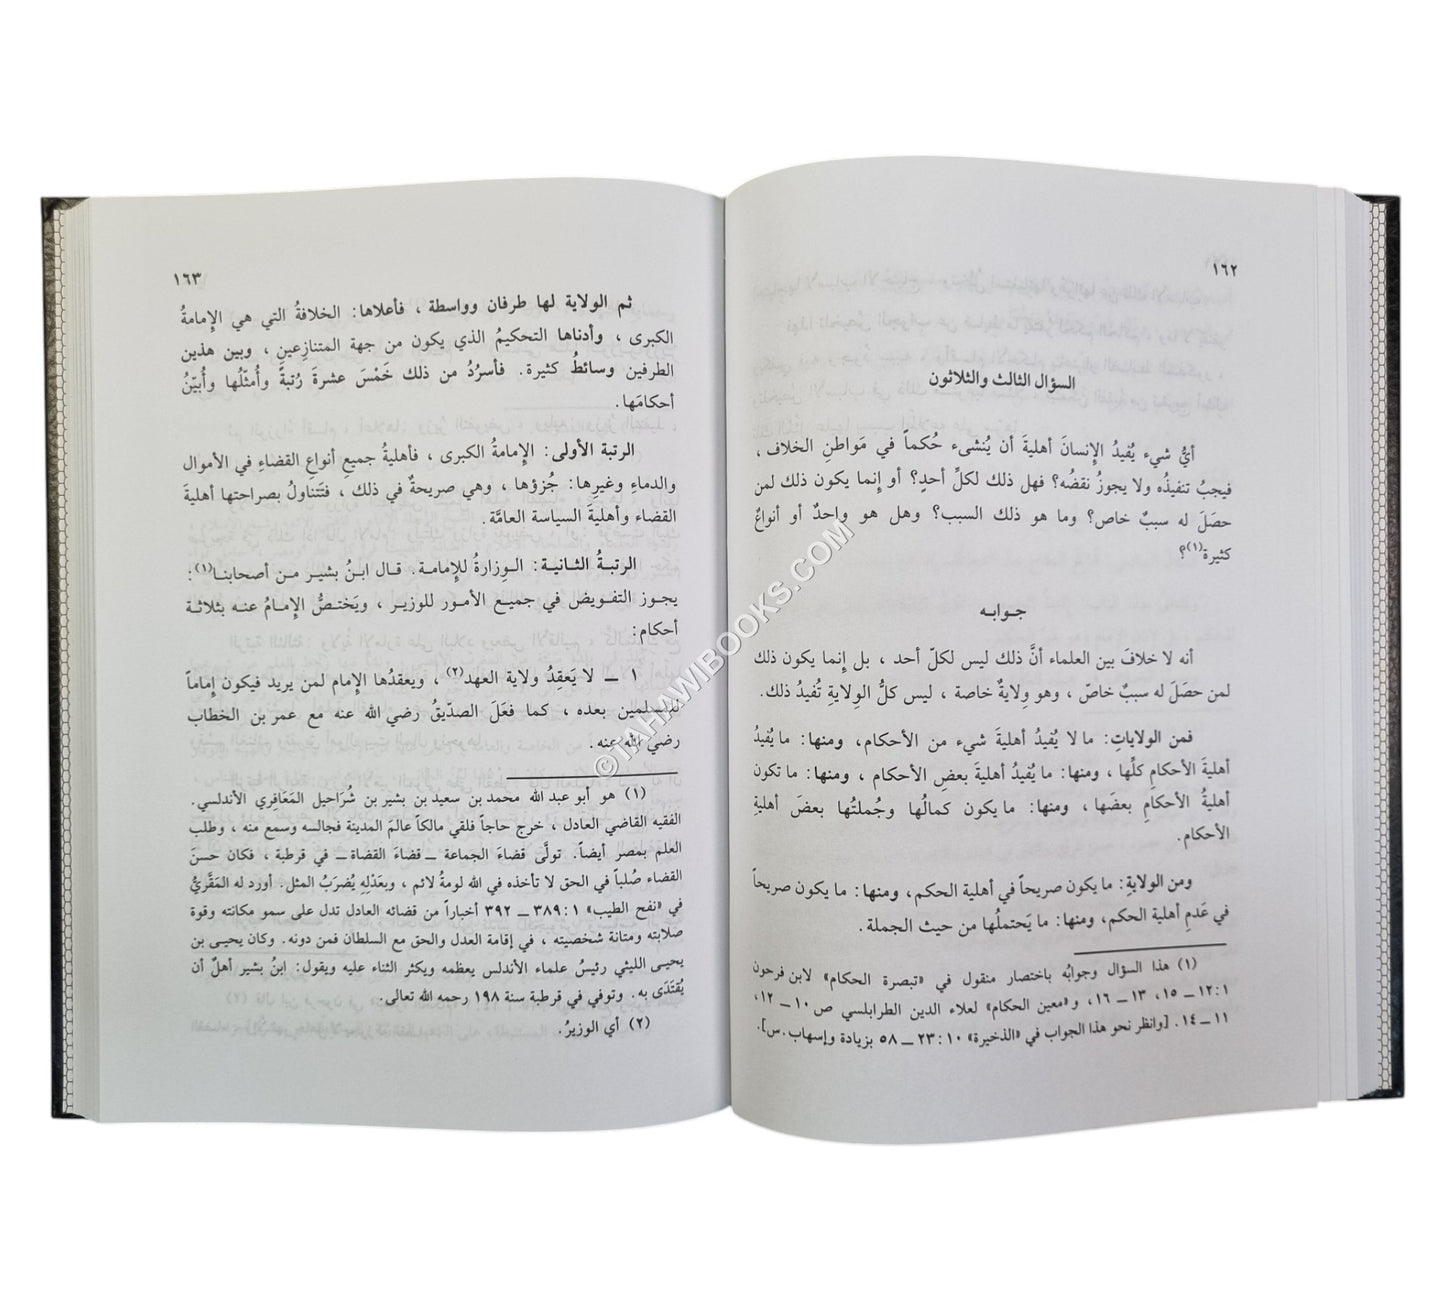 ١٦٢
السؤال الثالث والثلاثون
أيُّ شيء يُفيدُ الإِنسانَ أهليةَ أن يُنشىء حُكماً في مَواطنِ الخلاف ،
فيجبُ تنفيذُه ولا يجوزُ نقضُه؟ فهل ذلك لكلِّ أحدٍ؟ أو إِنما يكون ذلك لمن
حصَلَ له سببٌ خاص؟ وما هو ذلك السبب؟ وهل هو واحدٌ أو أنواعٌ
كثيرة(١)؟
جـوابـه
أنه لا خلافَ بين العلماء أنَّ ذلك ليس لكلّ أحد ، بل إِنما يكون ذلك
لمن حصَلَ له سببٌ خاصّ ، وهو وِلايةٌ خاصة ، ليس كلُّ الوِلايةِ تُفيدُ ذلك.
فمن الولاياتِ: ما لا يُفيدُ أهليةَ شيء من الأحكام، ومنها: ما يُفيدُ
أهليةَ الأحكامِ كلِّها ، ومنها: ما يُفيدُ أهليةَ بعضِ الأحكام ، ومنها: ما تكون
أهليةُ الأحكامِ بعضَها، ومنها: ما يكون كمالُها وجُملتُها بعضَ أهليةِ
الأحكام.
ومن الولايةِ: ما يكون صريحاً في أهلية الحكم، ومنها: ما يكون صريحاً
في عَدمِ أهلية الحكم، ومنها: ما يَحتملُها من حيث الجملة.
(١) هذا السؤال وجوابُه باختصار منقول في «تبصرة الحكام» لابن فرحون
١: ١٢ ــ ١٥، ١٣ ــ ١٦، و«معين الحكام» لعلاء الدين الطرابلسي ص ١٠ ــ ١٢،
١١ ــ ١٤. [وانظر نحو هذا الجواب في «الذخيرة» ١٠: ٢٣ ــ ٥٨ بزيادة وإسهاب.س].
١٦٣
ثم الولاية لها طرفان وواسطة ، فأعلاها: الخلافةُ التي هي الإِمامةُ
الكبرى ، وأدناها التحكيمُ الذي يكون من جهة المتنازعين ، وبين هذين
الطرفين وسائطُ كثيرة. فأسرُدُ من ذلك خَمْسَ عشرةَ رُتبةً وأُمثّلُها وأُبيّنُ
أحكامَها.
الرتبة الأولى: الإِمامةُ الكبرى ، فأهليةُ جميعِ أنواعِ القضاءِ في الأموال
والدماءِ وغيرِها: جُزؤها ، وهي صريحةٌ في ذلك ، فتَتناولُ بصراحتها أهليةَ
القضاء وأهليةَ السياسة العامَّة.
الرتبةُ الثانية: الوِزارةُ للإِمامة. قال ابنُ بشير من أصحابنا(١):
يجوز التفويض في جميع الأمور للوزير ، ويَختصُّ الإِمامُ عنه بثلاثة
أحكام:
١ ــ لا يَعقِدُ ولاية العهد(٢) ، ويعقدُها الإِمام لمن يريد فيكون إِماماً
للمسلمين بعده ، كما فعَلَ الصدّيقُ رضي الله عنه مع عمر بن الخطاب
رضي الله عنه.
(١) هو أبو عبد الله محمد بن سعيد بن بشير بن شُرَاحيل المَعَافِري الأندلسي.
الفقيه القاضي العادل ، خرج حاجاً فلقي مالكاً عالمَ المدينة فجالسه وسمع منه ، وطلب
العلم بمصر أيضاً. تولَّى قضاءَ الجماعة ــ قضاءَ القضاة ــ في قرطبة ، فكان حسنَ
القضاء صُلباً في الحق لا تأخذه في الله لومةُ لائم ، وبعَدْلِهِ يُضرَبُ المثل. أورد له المَقَّرِيُّ
في «نفح الطيب» ١: ٣٨٩ ــ ٣٩٢ أخباراً من قضائه العادل تدل على سمو مكانته وقوة
صلابته ومتانة شخصيته ، في إقامة العدل والحق مع السلطان فمن دونه. وكان يحيى بن
يحيى الليثي رئيسُ علماء الأندلس يعظمه ويكثر الثناء عليه ويقول: ابنُ بشير أهلٌ أن
يُقتَدَى به. وتوفي في قرطبة سنة ١٩٨ رحمه الله تعالى.
(٢) أي الوزيرُ.
©TAHAWIBOOKS.COM